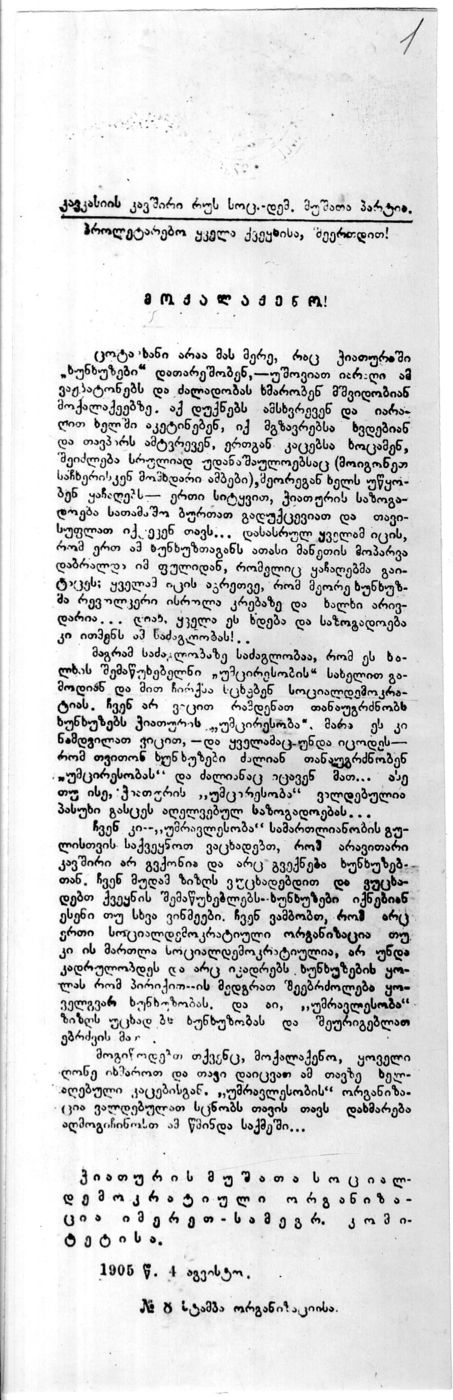 1
კავკასიის კავშირი რუს სოც.-დემ. მუშათა პარტია.
პროლეტარებო ყველა ქვეყნისა, შეერთდით!
მოქალაქენო!
ცოტა ხანი არაა მას მერე, რაც ჭიათურაში
„ხუნხუზები“ დათარეშობენ,—უშოვიათ იარაღი ამ
ვაჟბატონებს და ძალადობას ხმარობენ მშვიდობიან
მოქალაქეებზე. აქ დუქნებს ამსხვრევენ და იარა-
ღით ხელში აკეტინებენ, იქ მგზავრებსა ხვდებიან
და თავპირს ამტვრევენ, ერთგან კაცებსა ხოცამენ,
შეიძლება სრულიად უდანაშაულოებსაც (მოიგონეთ
საჩხერისკენ მომხდარი ამბები), მეორეგან ხელს უწყო-
ბენ ყაჩაღებს— ერთი სიტყვით, ჭიათურის საზოგა-
დოება სათამაშო ბურთათ გადუქცევიათ და თავი-
სუფლათ იქცევენ თავს... დასასრულ ყველამ იცის,
რომ ერთ ამ ხუნხუზთაგანს ათასი მანეთის მოპარვა
დაბრალდა იმ ფულიდან, რომელიც ყაჩაღებმა გაი-
ტაცეს; ყველამ იცის აგრეთვე, რომ მეორე ხუნხუზ-
მა რევოლვერი ისროლა კრებაზე და ხალხი არივ-
დარია... დიახ, ყველა ეს ხდება და საზოგადოება
კი ითმენს ამ საძაგლობას!..
მაგრამ საძაგლობაზე საძაგლობაა, რომ ეს ხა-
ლხის შემაწუხებელნი „უმცირესობის“ სახელით გა-
მოდიან და მით ჩირქსა სცხებენ სოციალდემოკრა-
ტიას. ჩვენ არ ვიცით რამდენათ თანაუგრძნობს
ხუნხუზებს ჭიათურის „უმცირესობა“. მარა ეს კი
ნამდვილათ ვიცით, —და ყველამაც უნდა იცოდეს—
რომ თვითონ ხუნხუზები ძალიან თანაუგრძნობენ
„უმცირესობას“ და ძალიანაც იცავენ მათ... ასე
თუ ისე, ჭიათურის „უმცირესობა“ ვალდებულია
პასუხი გასცეს აღელვებულ საზოგადოებას...
ჩვენ კი—„უმრავლესობა“ სამართლიანობის გუ-
ლისთვის საქვეყნოთ ვაცხადებთ, რომ არავითარი
კავშირი არ გვქონია და არც გვექნება ხუნხუზებ-
თან. ჩვენ მუდამ ზიზღს ვუცხადებდით და ვუცხა-
დებთ ქვეყნის შემაწუხებლებს-ხუნხუზები იქნებიან
ესენი თუ სხვა ვინმეები. ჩვენ ვამბობთ, რომ არც
ერთი სოციალდემოკრატიული ორგანიზაცია თუ
კი ის მართლა სოციალდემოკრატიულია, არ უნდა
კადრულობდეს და არც იკადრებს ხუნხუზების ყო-
ლას რომ პირიქით—ის მედგრათ შეებრძოლება ყო-
ველგვარ ხუნხუზობას. და აი, „უმრავლესობა“
ზიზღს უცხადებს ხუნხუზობას და შეურიგებლათ
ებრძვის მას.
მოგიწოდებთ თქვენც, მოქალაქენო, ყოველი
ღონე იხმაროთ და თავი დაიცვათ ამ თავზე ხელ-
აღებული კაცებისგან. „უმრავლესობის“ ორგანიზა-
ცია ვალდებულათ სცნობს თავის თავს დახმარება
აღმოგიჩინოსთ ამ წმინდა საქმეში...
ჭიათურის მუშათა სოციალ-
დემოკრატიული ორგანიზა-
ცია იმერეთ-სამეგრ. კომი-
ტეტისა.
1905 წ. 4 აგვისტო.
№ 8 სტამბა ორგანიზაციისა.